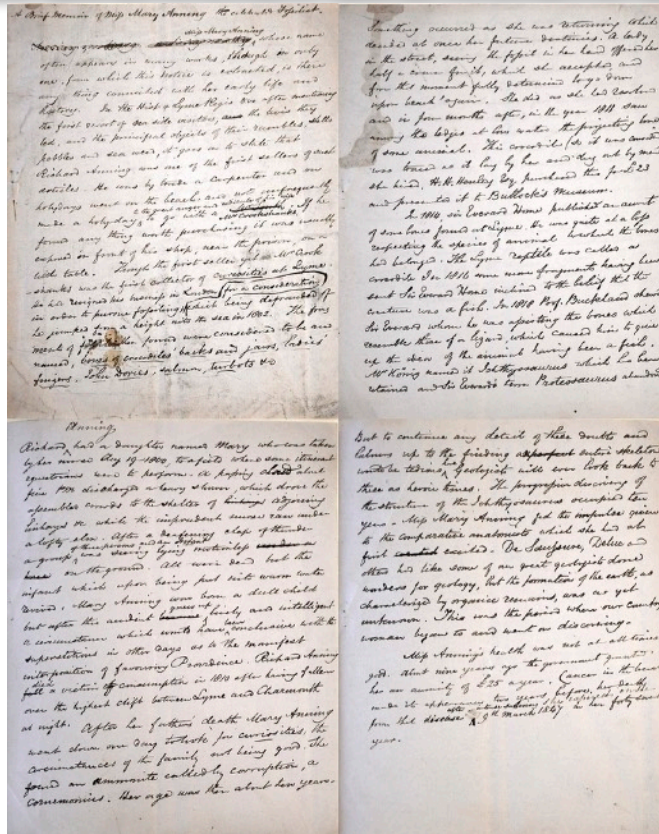 A Brief Memoir of Miss Mary Anning the celebrated Fossilist.
Miss Mary Anning
whose name
often appears in many works, though in only
one, from which this notice is extracted, is there
any thing connected with her early life and
history. In the Hist of Lyme Regis &c after mentioning
the first resort of sea side visitors, and the lives they
led, and the principal objects of their rambles, shells
pebbles and sea weed, it goes on to state that
Richard Anning was one of the first sellers of such
articles. He was by trade a carpenter and on
holydays went on the beach, and not unfrequently
made a holyday to go with a Mr Cruikshanks. If he
found any thing worth purchasing it was usually
exposed in front of his shop, near the prison, on a
little table. Though the first seller yet Mr Cook
shanks was the first collector of curiosities at Lyme.
So he resigned his business in London (for a consideration)
in order to pursue fossilizing, of which being defrauded
he jumped from a height into the sea in 1802. The frag
ments of found were considered to be and
named, bones of crocodiles backs and jaws, ladies'
fingers, John Dories, salmon, turbots &c
Anning
Richard, had a daughter named Mary who was taken
by her nurse Aug 19 1800, to a field where some itinerant
equestrians were to perform. A passing cloud about
five P.M. discharged a heavy shower, which drove the
assembled crowds to the shelter of adjoining
linhays &c while the imprudent nurse ran under
a lofty elm. After a deafening clap of thunder
a group was seen lying motionless
on the ground. All were dead but the
infant which upon being put into warm water
revived. Mary Anning was born a dull child
but after this accident grew up lively and intelligent
a circumstance which would have been conclusive with the
superstitious in other days as to the manifest
interposition of favouring Providence. Richard Anning
died a victim of consumption in 1810 after having fallen
over the highest cliff between Lyme and Charmouth
at night. After her fathers death Mary Anning
went down one day to look for curiosities, the
circumstances of the family not being good. She
found an ammonite called by corruption, a
cornemonius. Her age was then about ten years.
Something occurred as she was returning which
decided at once her future destinies. A lady
in the street, seeing the fossil in her hand offered her
half a crown for it, which she accepted, and
from that moment fully determined to go down
upon beach again. She did as she had resolved
and in four months after, in the year 1811 saw
among the ledges at low water the projecting bone
of some animal. This crocodile (so it was considered
was traced as it lay by her and dug out by men
she hired. H. H. Henley Esq. purchased this for £23
and presented it to Bullock's Museum.
In 1814, Sir Everard Home published an account
of some bones found at Lyme. He was quite at a loss
respecting the species of animal to which the bones
had belonged. The Lyme reptile was called a
crocodile. In 1816 some more fragments having been
sent Sir Everard Home inclined to the belief that the
creature was a fish. In 1818 Prof. Buckland shewed
Sir Everard whom he was assisting the bones which
resemble those of a lizard, which caused him to give
up the idea of the animal having been a fish.
Mr König named it Ichthyosaurus which has been
retained and Sir Everard's term Proteosaurus abandoned
But to continue any detail of these doubts and
labours up to the finding a perfect entire skeleton
would be tedious, but Geologists will ever look back to
these as heroic times. The progressive discovery of
the structure of the Ichthyosaurus occupied ten
years. Miss Mary Anning fed the impulse given
to the comparative anatomists which she had at
first excited. De Saussure, Deluc and
others had like some of our great geologists done
wonders for geology, but the formation of the earth, as
characterized by organic remains, was as yet
unknown. This was the period when our country
woman began to and went on discovering.
Miss Anning's health was not at all times
good. About nine years ago the government granted
her an annuity of £25 a year. Cancer in the breast
made its appearance two years before her death
from that disease 9th March 1847 in her forty
year.